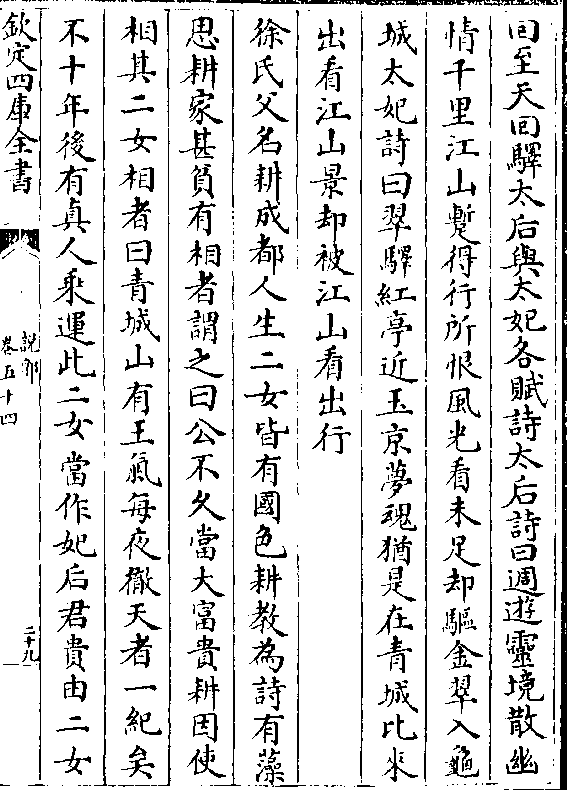 回至天回驛太后與太妃各賦詩太后詩曰週遊靈境散幽
情千里江山蹔得行所恨風光看未足却驅金翠入龜
城太妃詩曰翠驛紅亭近玉京夢魂猶是在青城比來
出看江山景却被江山看出行
徐氏父名耕成都人生二女皆有國色耕教為詩有藻
思耕家甚貧有相者謂之曰公不久當大富貴耕因使
相其二女相者曰青城山有王氣每夜徹天者一紀矣
不十年後有真人乘運此二女當作妃后君貴由二女
欽定四庫全書
說郛
卷五十四
二十九